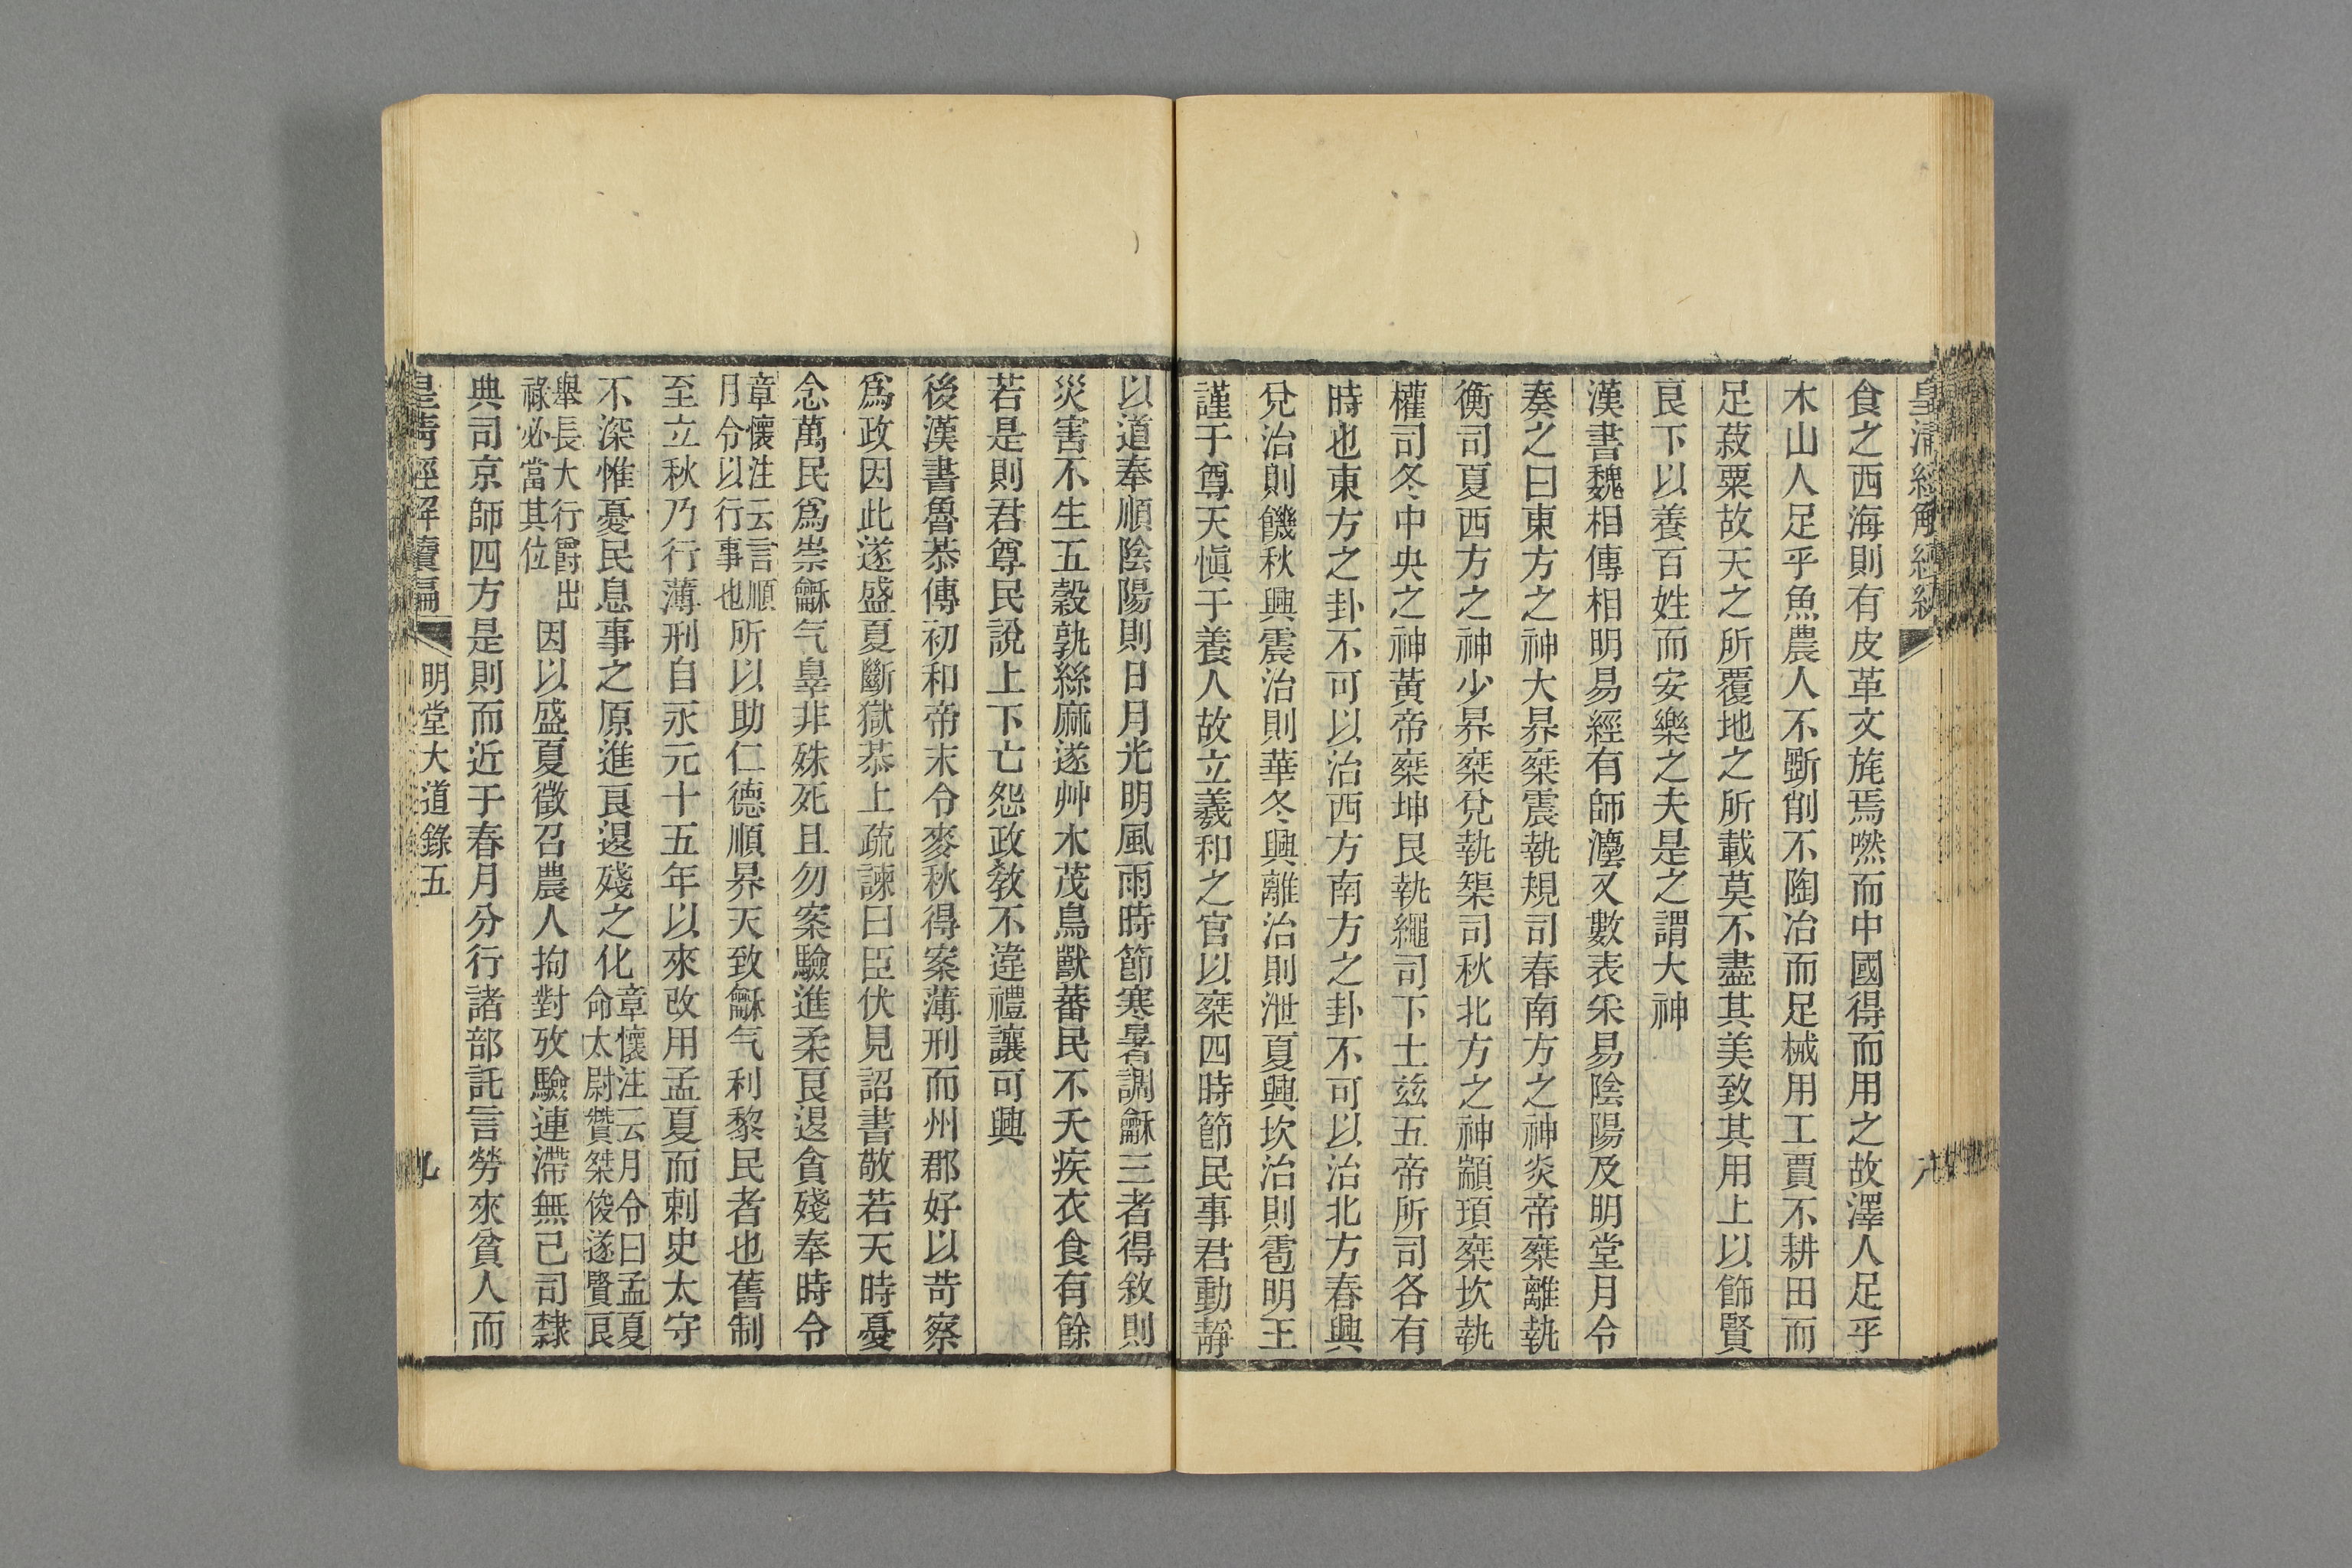 皇清經解續編
八
食之西海則有皮革文旄焉㷼而中國得而用之故澤人足乎
木山人足乎魚農人不斲削不陶冶而足械用工賈不耕田而
足菽粟故天之所覆地之所載莫不盡其美致其用上以飾賢
良下以養百姓而安樂之夫是之謂大神
漢書魏相傳相明易經有師灋又數表采易陰陽及明堂月令
奏之曰東方之神大昦椉震執規司春南方之神炎帝椉離執
衡司夏西方之神少昦椉兌執榘司秋北方之神顓頊椉坎執
權司冬中央之神黃帝椉坤艮執繩司下土茲五帝所司各有
時也東方之卦不可以治西方南方之卦不可以治北方春興
兌治則饑秋興震治則華冬興離治則泄夏興坎治則雹明王
謹于尊天愼于養人故立羲和之官以椉四時節民事君動靜
以道奉順陰陽則日月光明風雨時節寒暑調龢三者得敘則
災害不生五穀孰絲麻遂艸木茂鳥獸蕃民不夭疾衣食有餘
若是則君尊民說上下亡怨政敎不違禮讓可興
後漢書魯恭傳初和帝末令麥秋得案薄刑而州郡好以苛察
爲政因此遂盛夏斷獄恭上疏諫曰臣伏見詔書敬若天時憂
念萬民爲崇龢气辠非殊死且勿案驗進柔良退貪殘奉時令
章懷注云言順
月令以行事也
所以助仁德順昦天致龢气利黎民者也舊制
至立秋乃行薄刑自永元十五年以來改用孟夏而刺史太守
不深惟憂民息事之原進良退殘之化
章懷注云月令曰孟夏
命太尉贊桀俊遂賢良
舉長大行爵出
祿必當其位
因以盛夏徵召農人拘對攷驗連滯無已司隸
典司京師四方是則而近于春月分行諸部託言勞來貧人而
皇清經解續編
明堂大道錄五
九